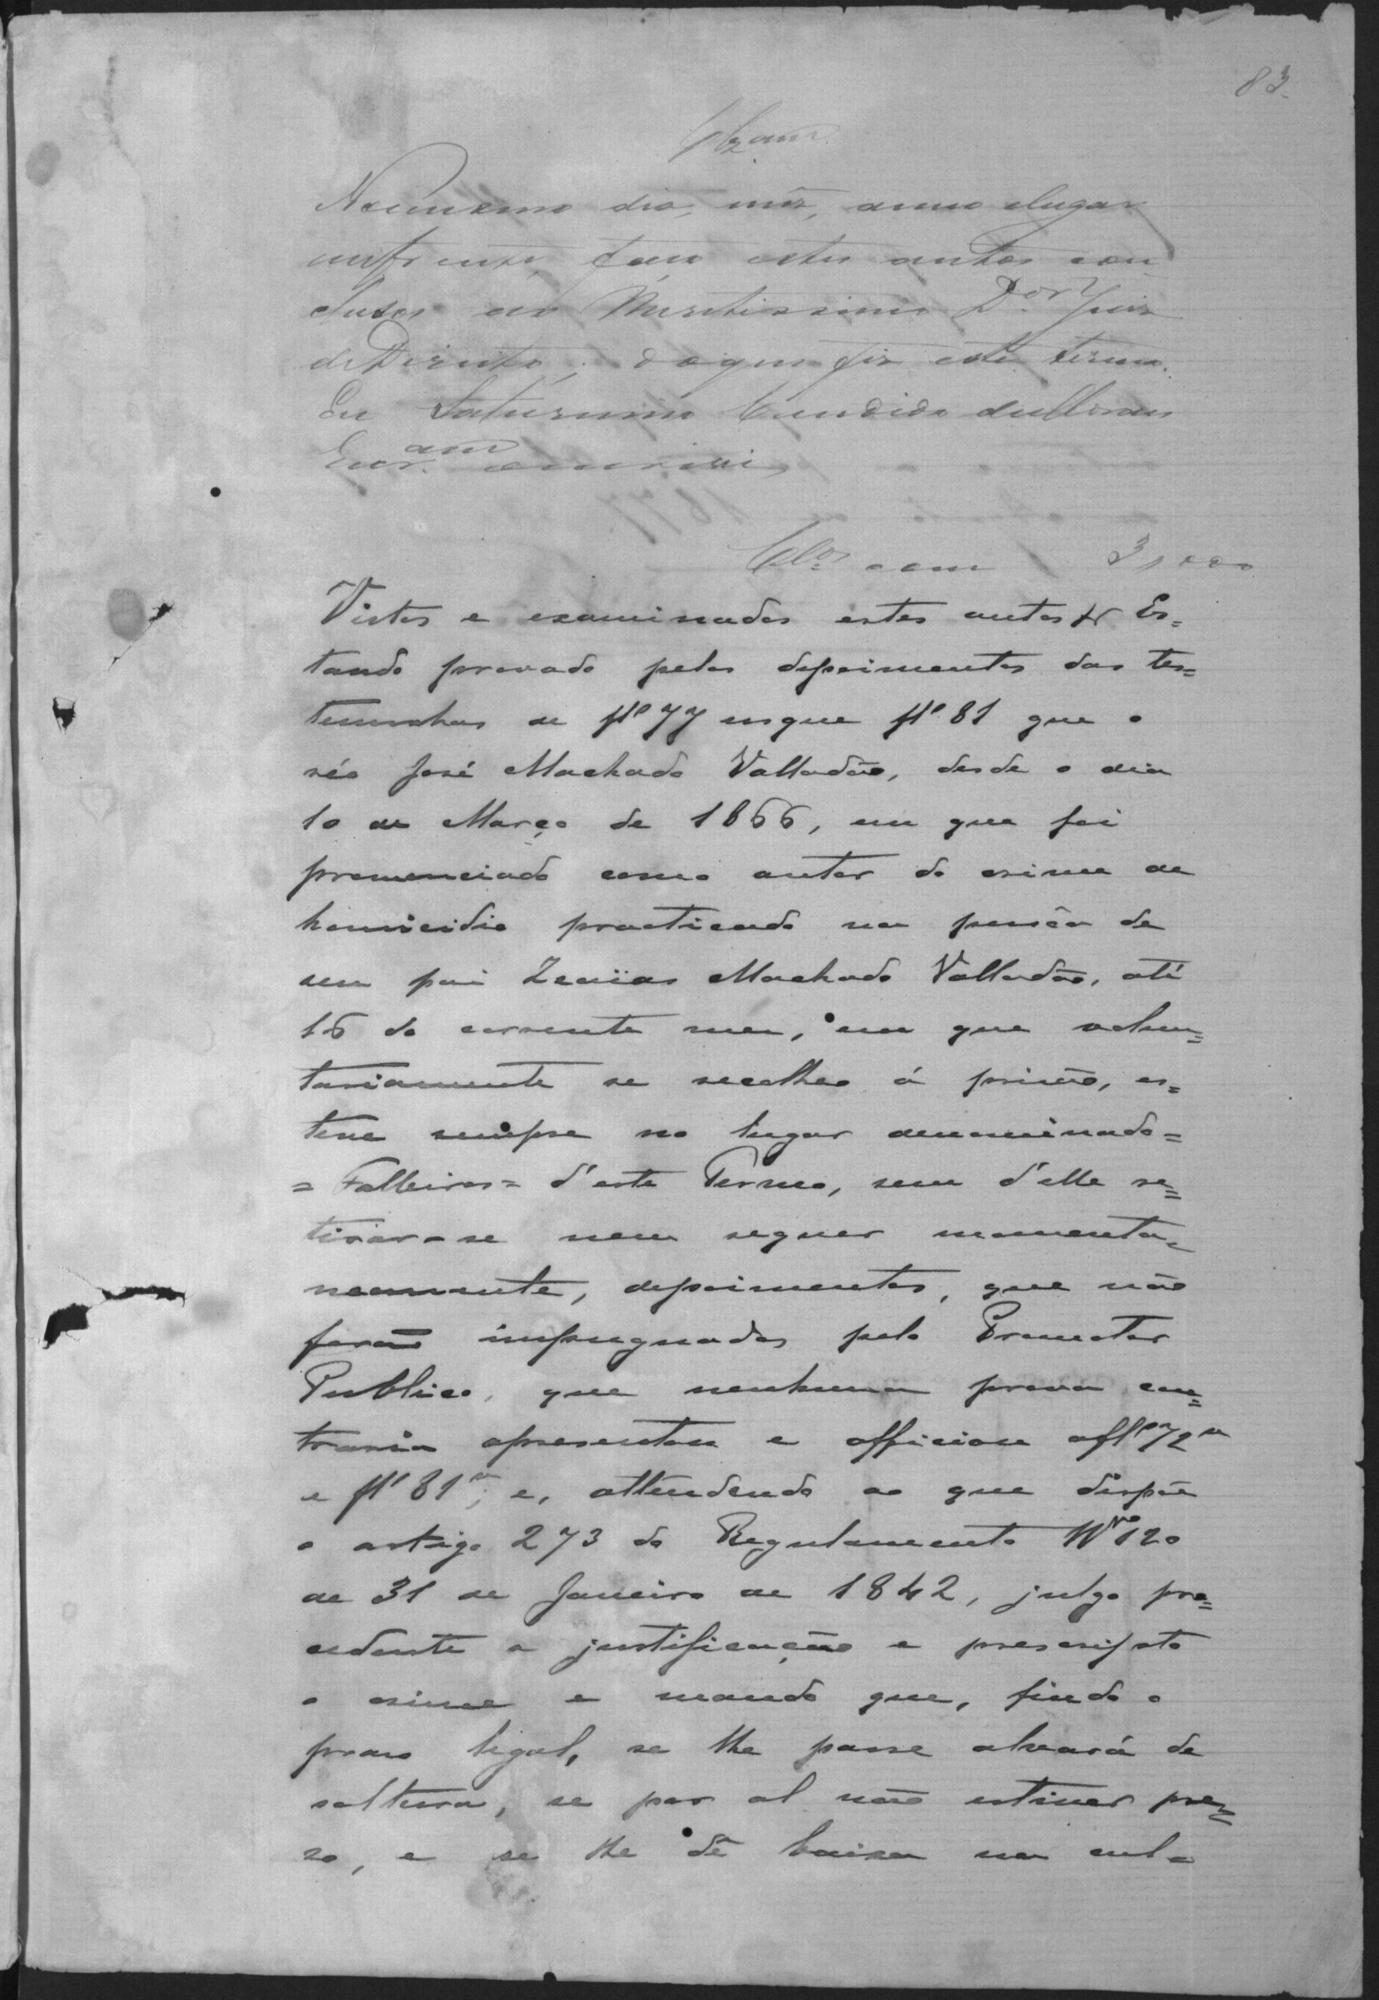 83.
Clzam
No mesmo dia, mez, anno e lugar
em frente, faço estes autos con
clusos ao Meretissimo D.or Juiz
de Direito; do que fiz este termo.
Eu Saturnino Candido de Moraes
Escr.am o escrevi,
Cl.os com 3,000
Vistos e examinados estes autos &. Es=
tando provado pelos depoimentos das tes=
temunhas de fls 77 usque fls 81 que o
réo José Machado Valladão, desde o dia
10 de Março de 1866, em que foi
pronunciado como autor do crime de
homicidio practicado na pessôa de
seu pai Izaïas Machado Valladão, até
16 do corrente mez, em que volun=
tariamente se recolheo á prisão, es=
teve sempre no lugar denominado=
=Falleiros= d'este Termo, sem d'elle re=
tirar-se nem sequer momenta=
neamente, depoimentos, que não
forão impugnados pelo Promotor
Publico, que nenhuma prova con=
traria apresentou e officiou a fls 72 v
e fls 81 v; e, attendendo ao que dispõe
o artigo 273 do Regulamento Nro 120
de 31 de Janeiro de 1842, julgo pro=
cedente a justificação e prescripto
o crime e mando que, findo o
praso legal, se lhe passe alvará de
soltura, se por al não estiver pre=
so, e se lhe dê baixa na cul-